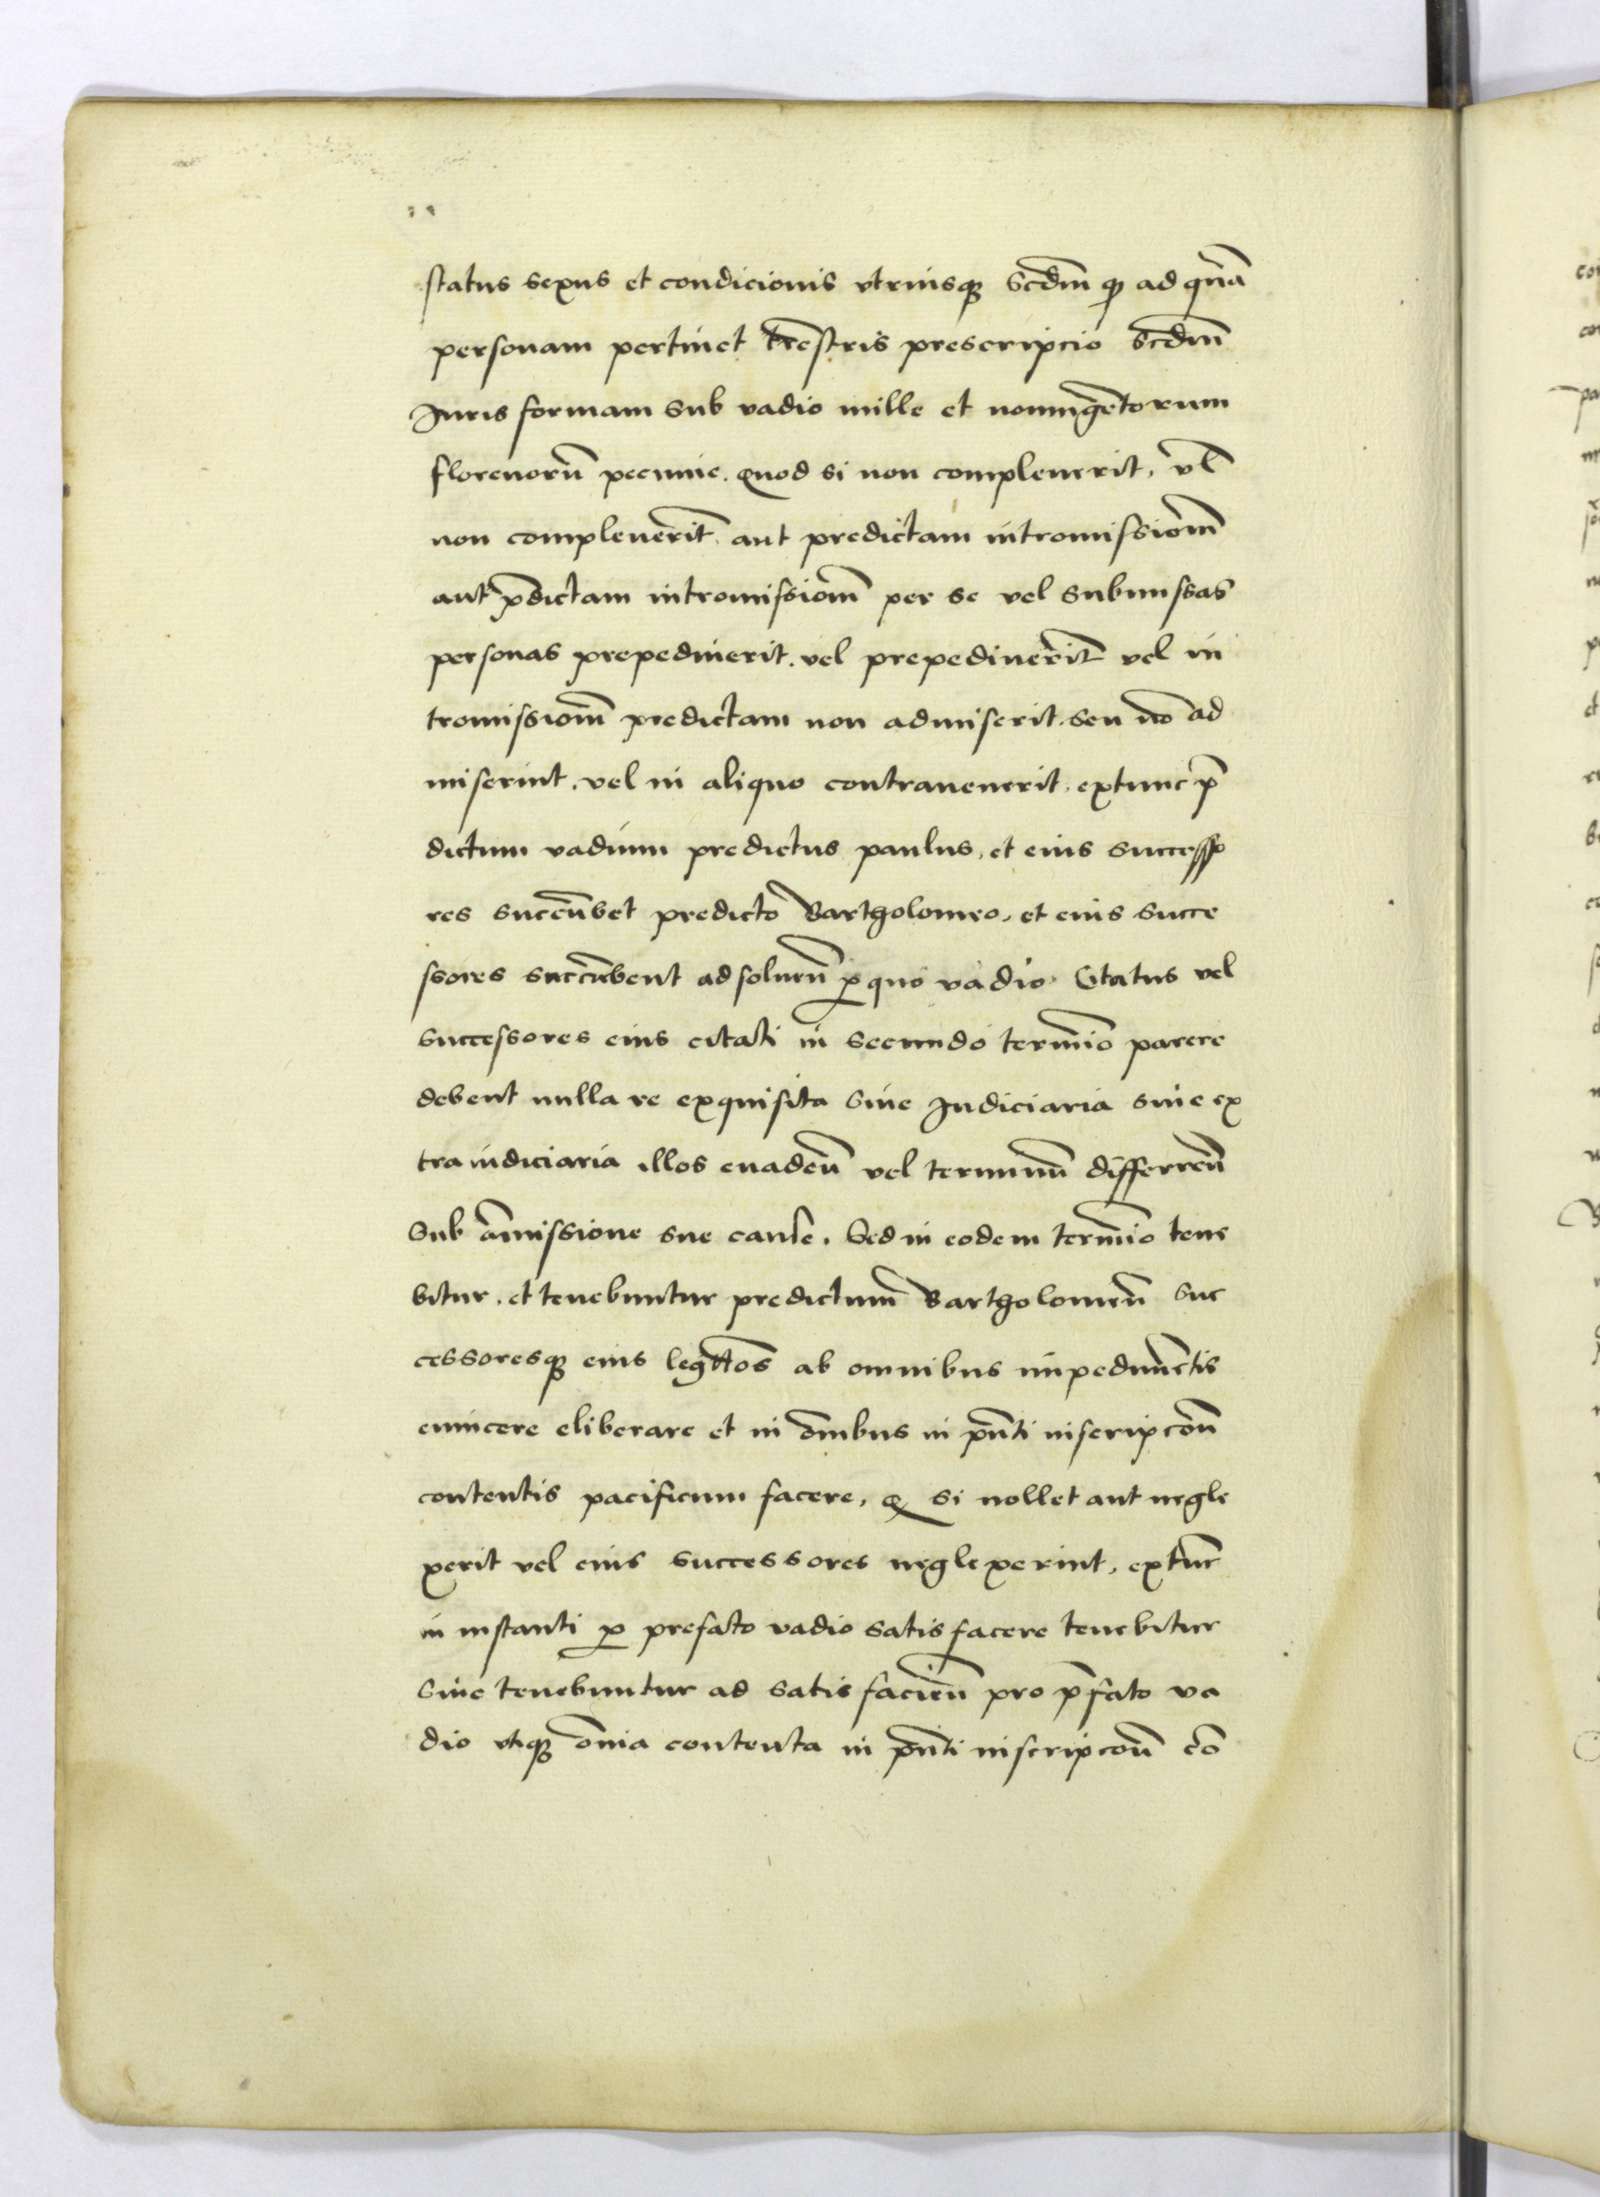 status sexus et condicionis vtriusqꝫ Scdm̄ ꝙ ad quā
personam pertinet trēstris prescripcio Scdm̄
Juris formam Sub vadio mille et noningētorum
florenorū pecunie. Quod si non compleuerit, vl̄
non compleuerīt aut predictam intromissiom̄
aut p̄dictam intromissiom̄ per se vel submissas
personas prepediuerit. vel prepediuerīt vel in
tromissiom̄ predictam non admiserit. seu nō ad
miserint. vel in aliquo contrauenerit. extunc p̄
dictum vadium predictus paulus, et eius successo
res succūbet predicto Bartholomeo, et eius succe
ssores succūbent ad soluen̄ ꝓ quo vadio. Citatus vel
successores eius citati in secundo term̄io parere
debent nulla re exquisita siue Judiciaria siue ex
traiudiciaria illos euaden̄ vel terminū differren̄
Sub āmissione sue cause. Sed in eodem term̄io tene
bitur. et tenebuntur predictum Bartholomeū Suc
cessoresqꝫ eius legittōs ab omnibus impedimētis
euincere eliberare et in ōmbus in pn̄ti inscripcon̄
contentis pacificum facere, Q si nollet aut negle
xerit vel eius successores neglexerint, extunc
in instanti ꝓ prefato vadio satisfacere tenebitur
siue tenebuntur ad satisfacien̄ pro p̄fato va
dio vtiqꝫ ōnia contenta in pn̄ti inscripcon̄ cō